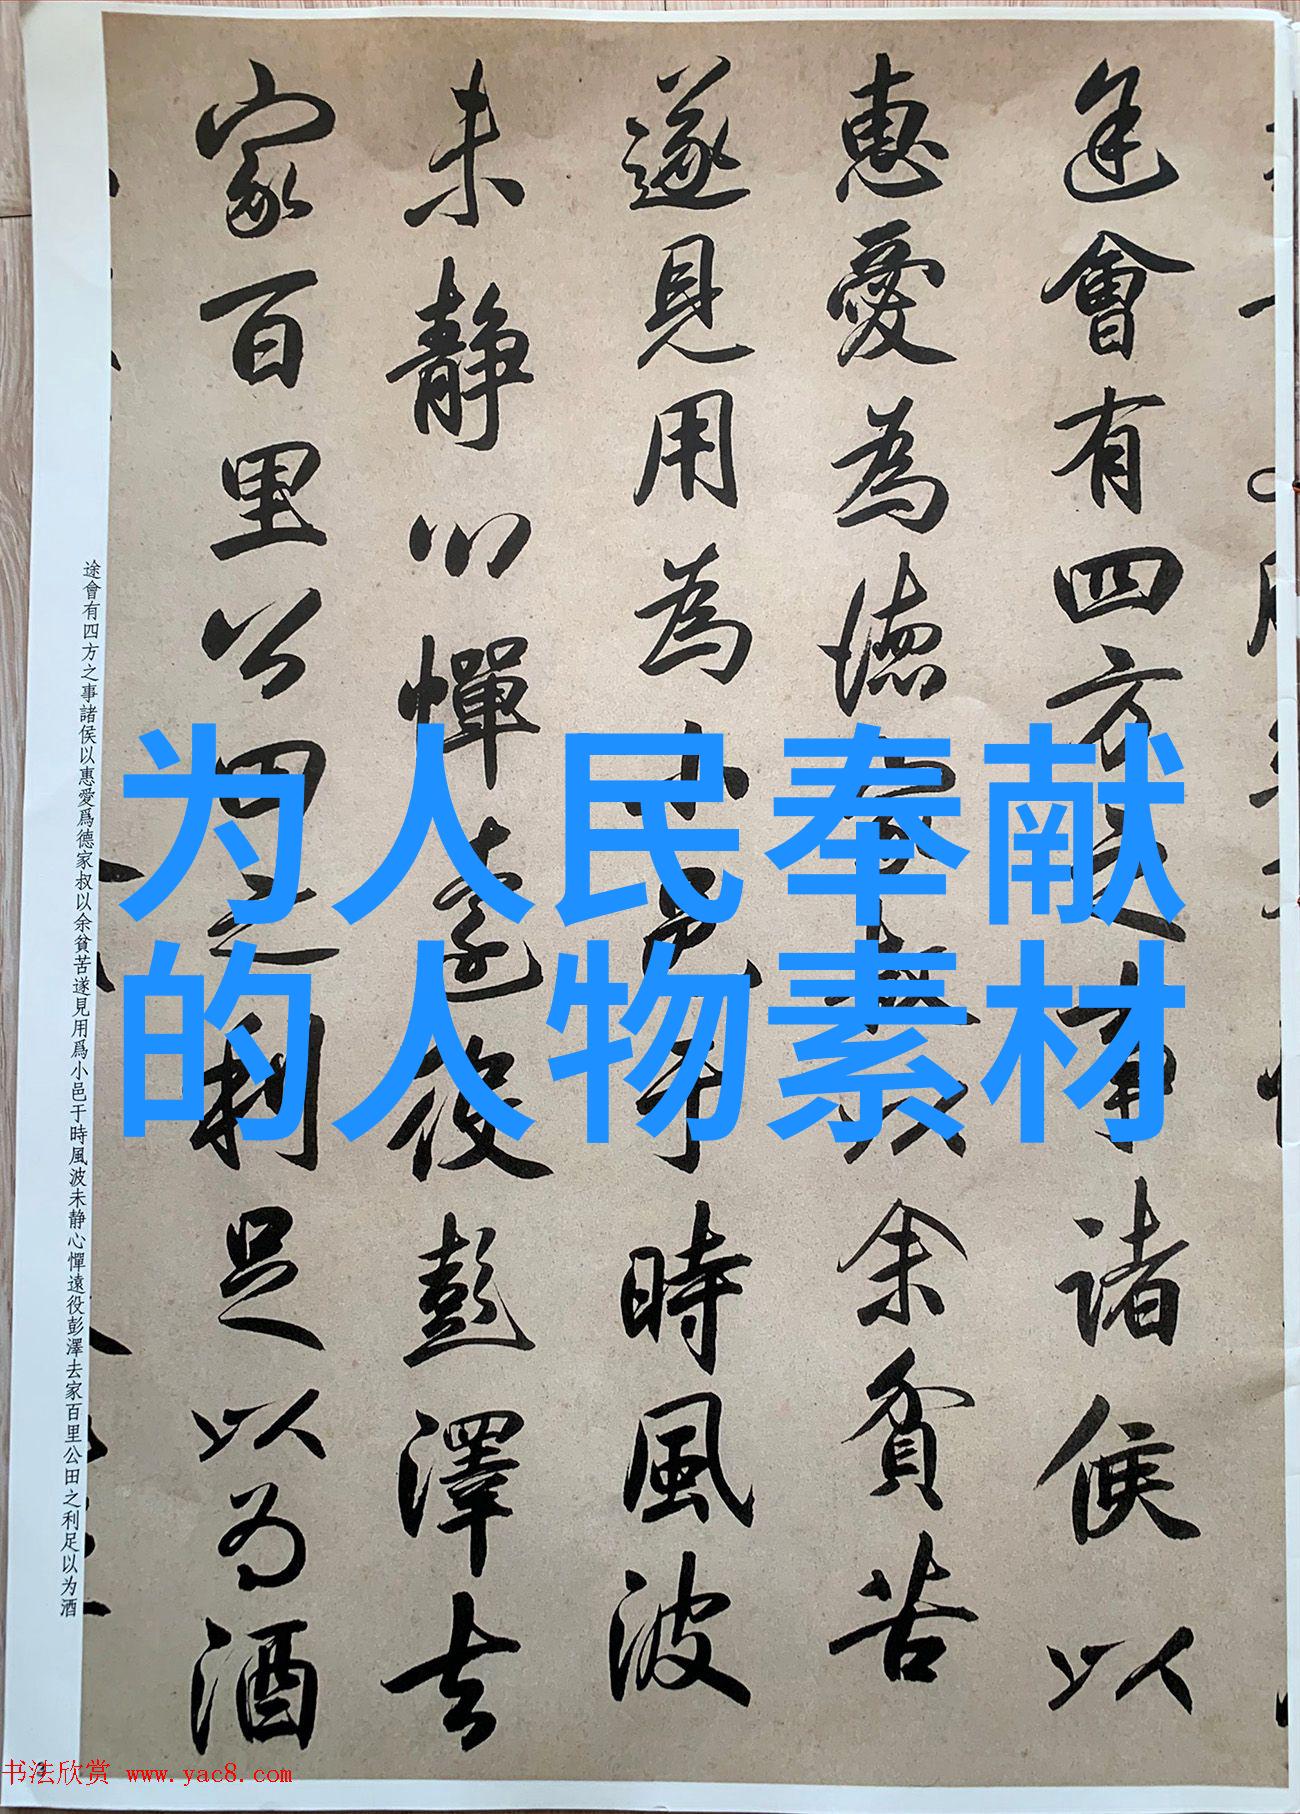 途會有四方之事諸侯以
惠愛為德家叔以余貧苦
遂見用為小邑于時風波
未靜心憚遠役彭澤去
家百里公田之利足以為酒
途會有四方之事諸侯以惠愛爲德家叔以余貧苦遂見用爲小邑于時風波未靜心憚遠役彭澤去家百里公田之利足以为酒
为人民奉献
的人物素材
书法欣赏 www.yac8.com